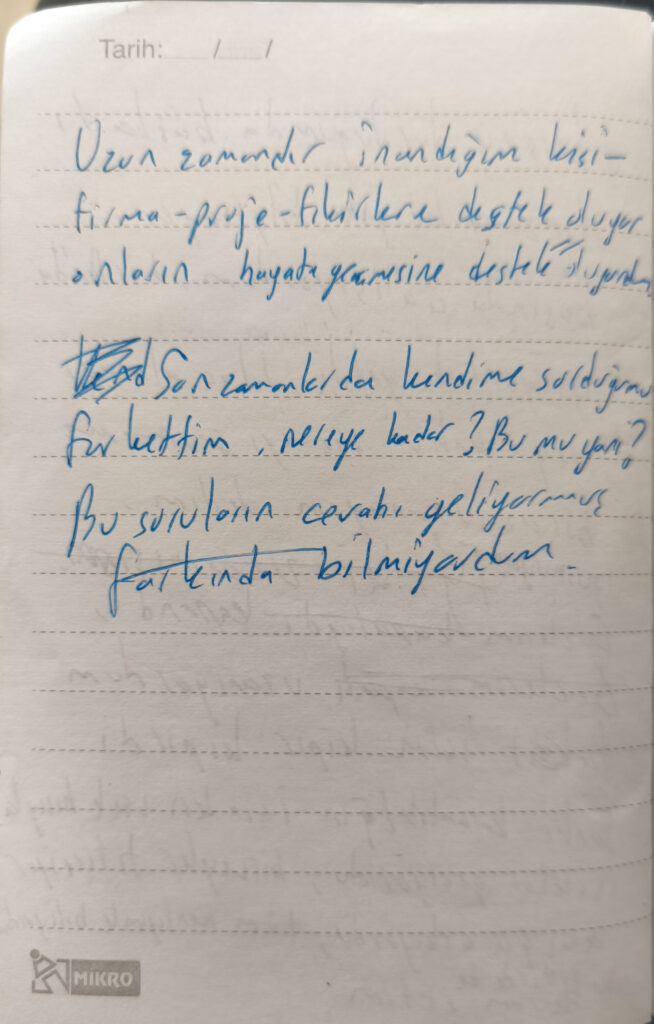 Tarih: / /
Uzun zamandır inandığım kişi-
firma-proje-fikirlere destek oluyor
onların hayata geçmesine destek oluyordum
Son zamanlarda kendime sorduğumu
farkettim, nereye kadar? Bu mu yani?
Bu soruların cevabı geliyormuş
farkında bilmiyordum.
MİKRO